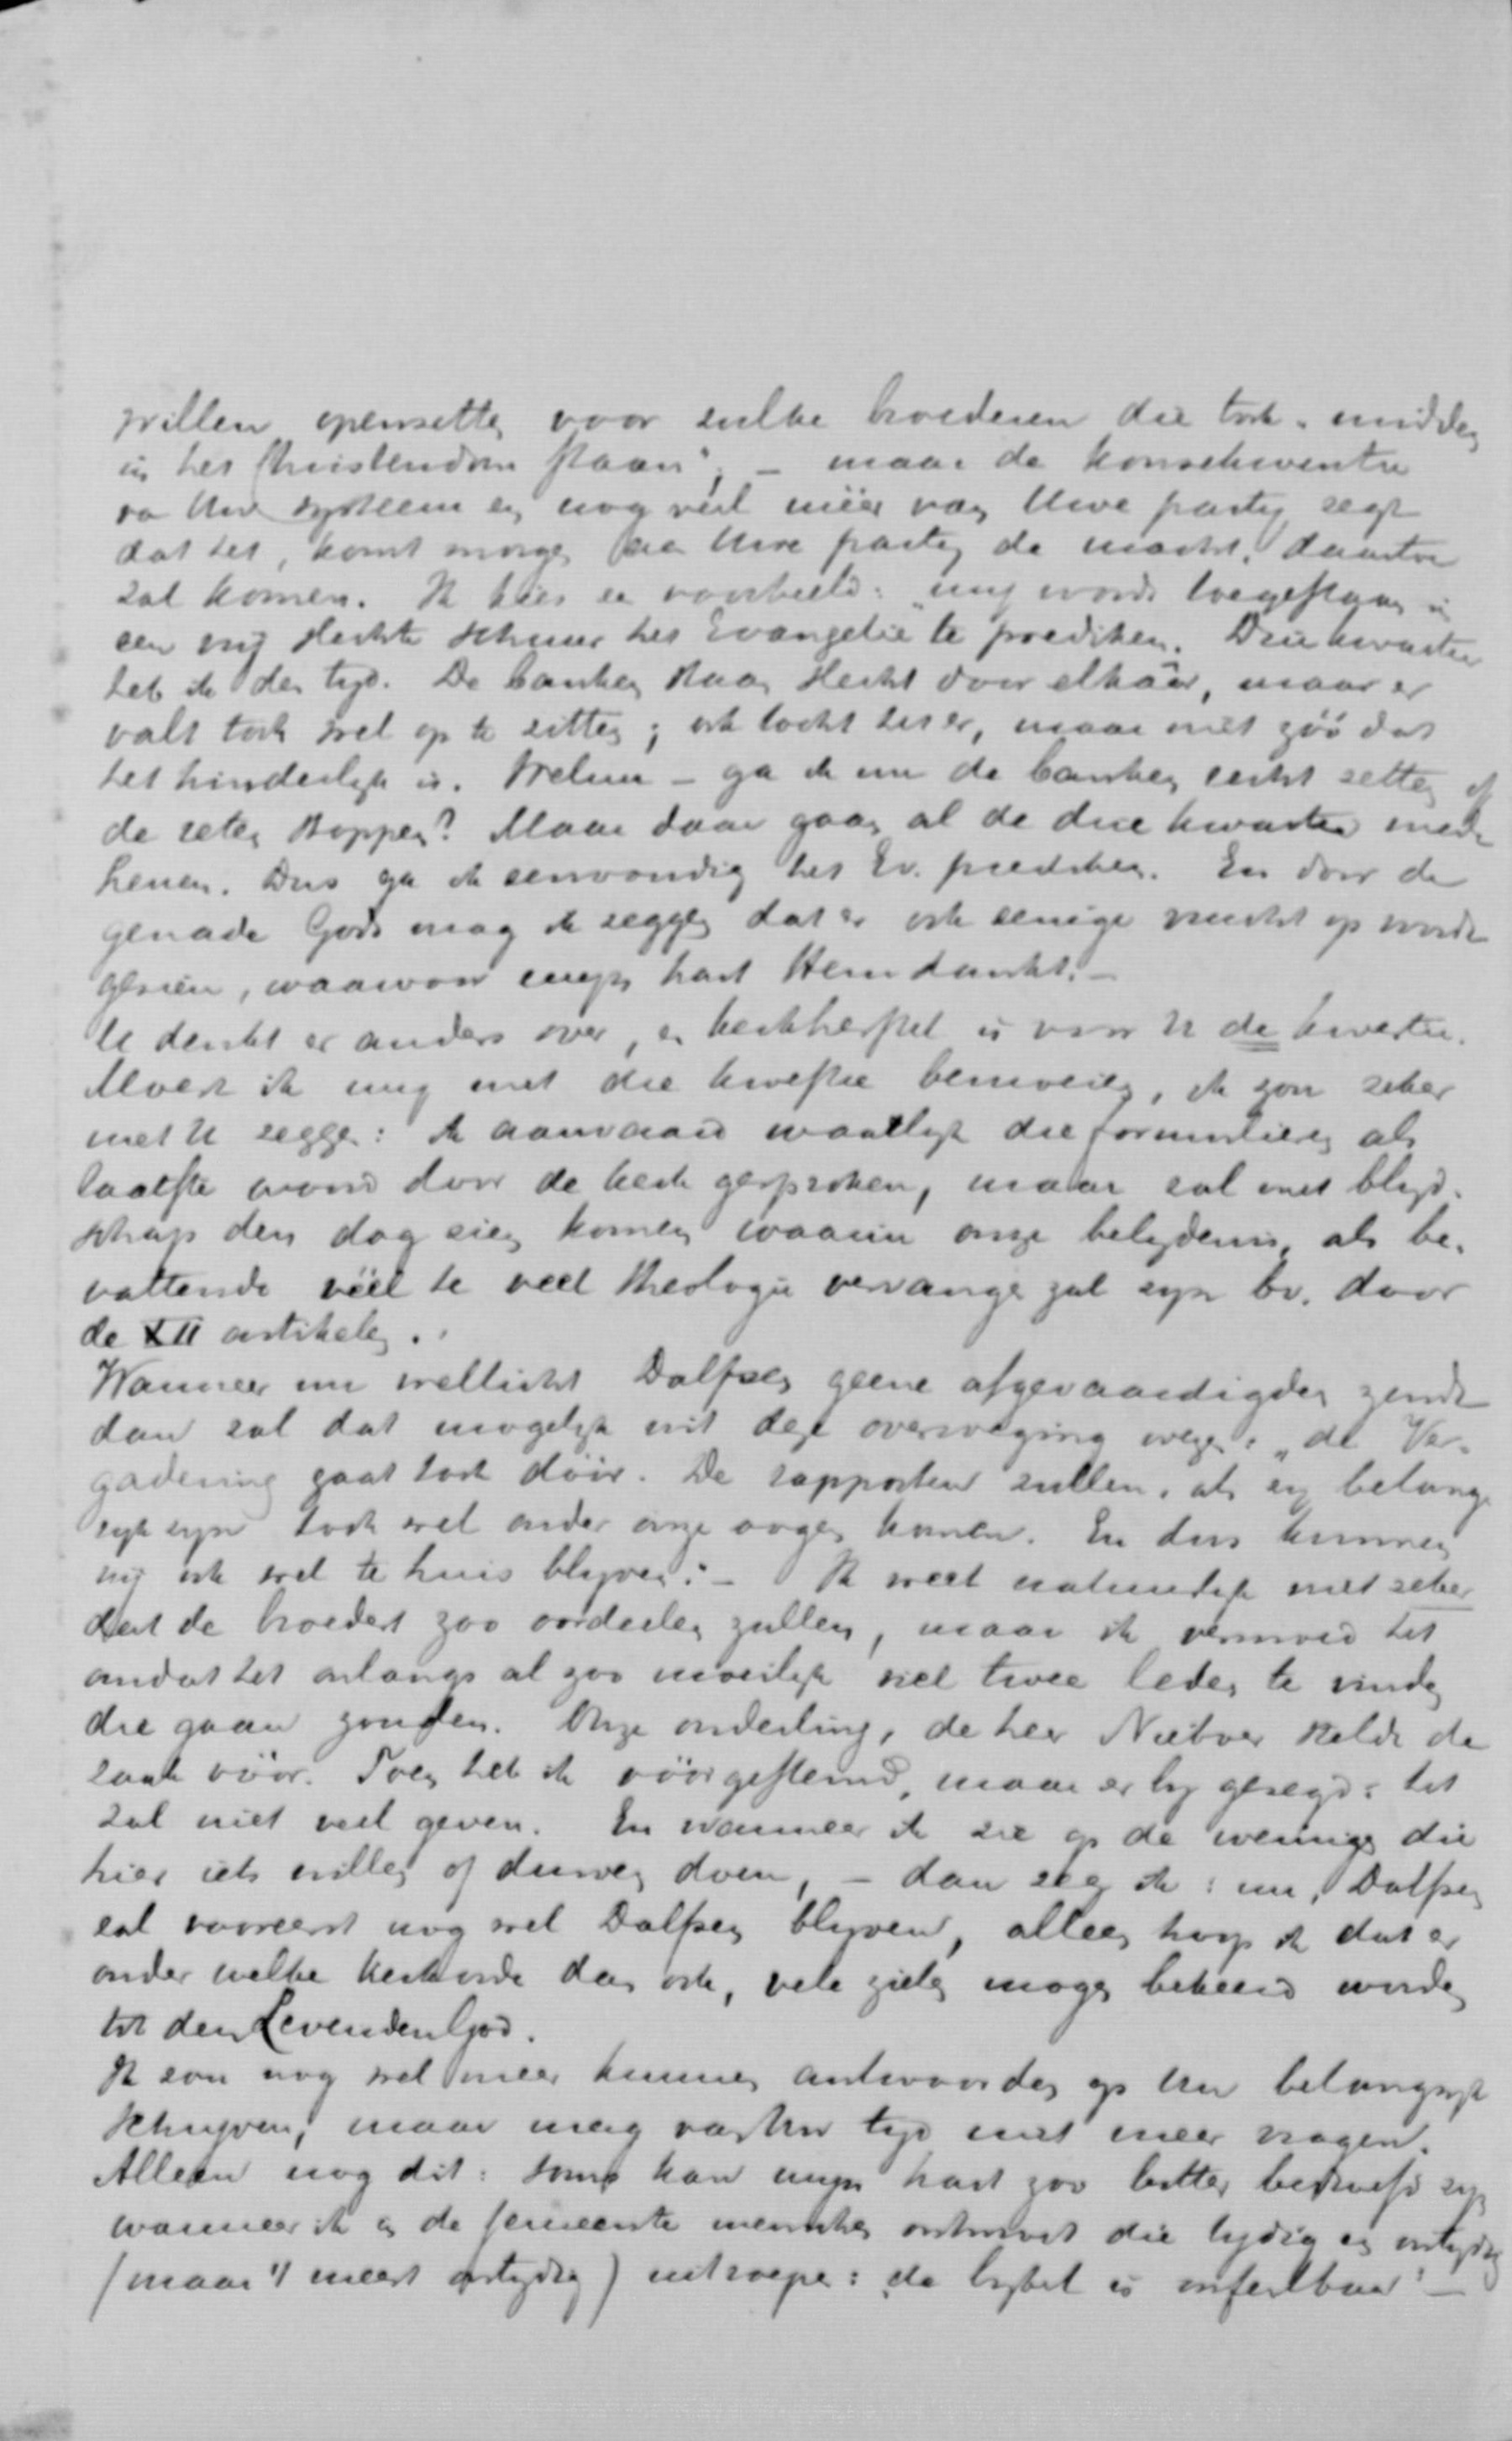 willen openzetten voor zulke broederen die toch „midden
in het Christendom staan"; – maar de konsekwentie
van Uw systeem en nog veel méér van Uwe partij zegt
dat het, komt morgen aan Uwe partij de macht, daartoe
zal komen. Ik kies een voorbeeld: „mij wordt toegestaan in
een vrij slechte schuur het Evangelie te prediken. Drie kwartier
heb ik den tijd. De banken staan slecht door elkaâr, maar er
valt toch wel op te zitten; ook tocht het er, maar niet zóó dat
het hinderlijk is. Welnu – ga ik nu de banken recht zetten of
de reten stoppen? Maar daar gaan al de drie kwartier mede
henen. Dus ga ik eenvoudig het Ev. prediken. En door de
genade Gods mag ik zeggen dat er ook eenige vrucht op wordt
gezien, waarvoor mijn hart Hem dankt. –
U denkt er anders over, en kerkherstel is voor U de kwestie.
Moest ik mij met die kwestie bemoeien, ik zou zeker
met U zeggen: ik aanvaard waarlijk die formulieren als
laatste woord door de kerk gesproken, maar zal met blijd-
schap den dag zien komen waarin onze belijdenis, als be-
vattende véél te veel theologie vervangen zal zijn bv. door
de XII artikelen.
Wanneer nu wellicht Dalfsen geene afgevaardigden zendt
dan zal dat mogelijk uit deze overweging wezen: „de Ver-
gadering gaat toch dóór. De rapporten zullen, als zij belang-
rijk zijn toch wel onder onze oogen komen. En dus kunnen
wij ook wel te huis blijven." – Ik weet natuurlijk niet zeker
dat de broeders zoo oordeelen zullen, maar ik vermoed het
omdat het onlangs al zoo moeilijk viel twee leden te vinden
die gaan zouden. Onze ouderling, de heer stelde de
zaak vóór. Toen heb ik vóórgestemd, maar er bij gezegd: het
zal niet veel geven. En wanneer ik zie op de weinigen die
hier iets willen of durven doen, – dan zeg ik: nu, Dalfsen
zal vooreerst nog wel Dalfsen blijven, alleen hoop ik dat er
onder welke kerkorde dan ook, vele zielen mogen bekeerd worden
tot den Levenden God.
Ik zou nog wel meer kunnen antwoorden op Uw belangrijk
schrijven, maar mag van Uw tijd niet meer vragen.
Alleen nog dit: soms kan mijn hart zoo bitter bedroefd zijn
wanneer ik in de gemeente menschen ontmoet die tijdig en ontijdig
(maar 't meest ontijdig) uitroepen: „de bijbel is onfeilbaar" –